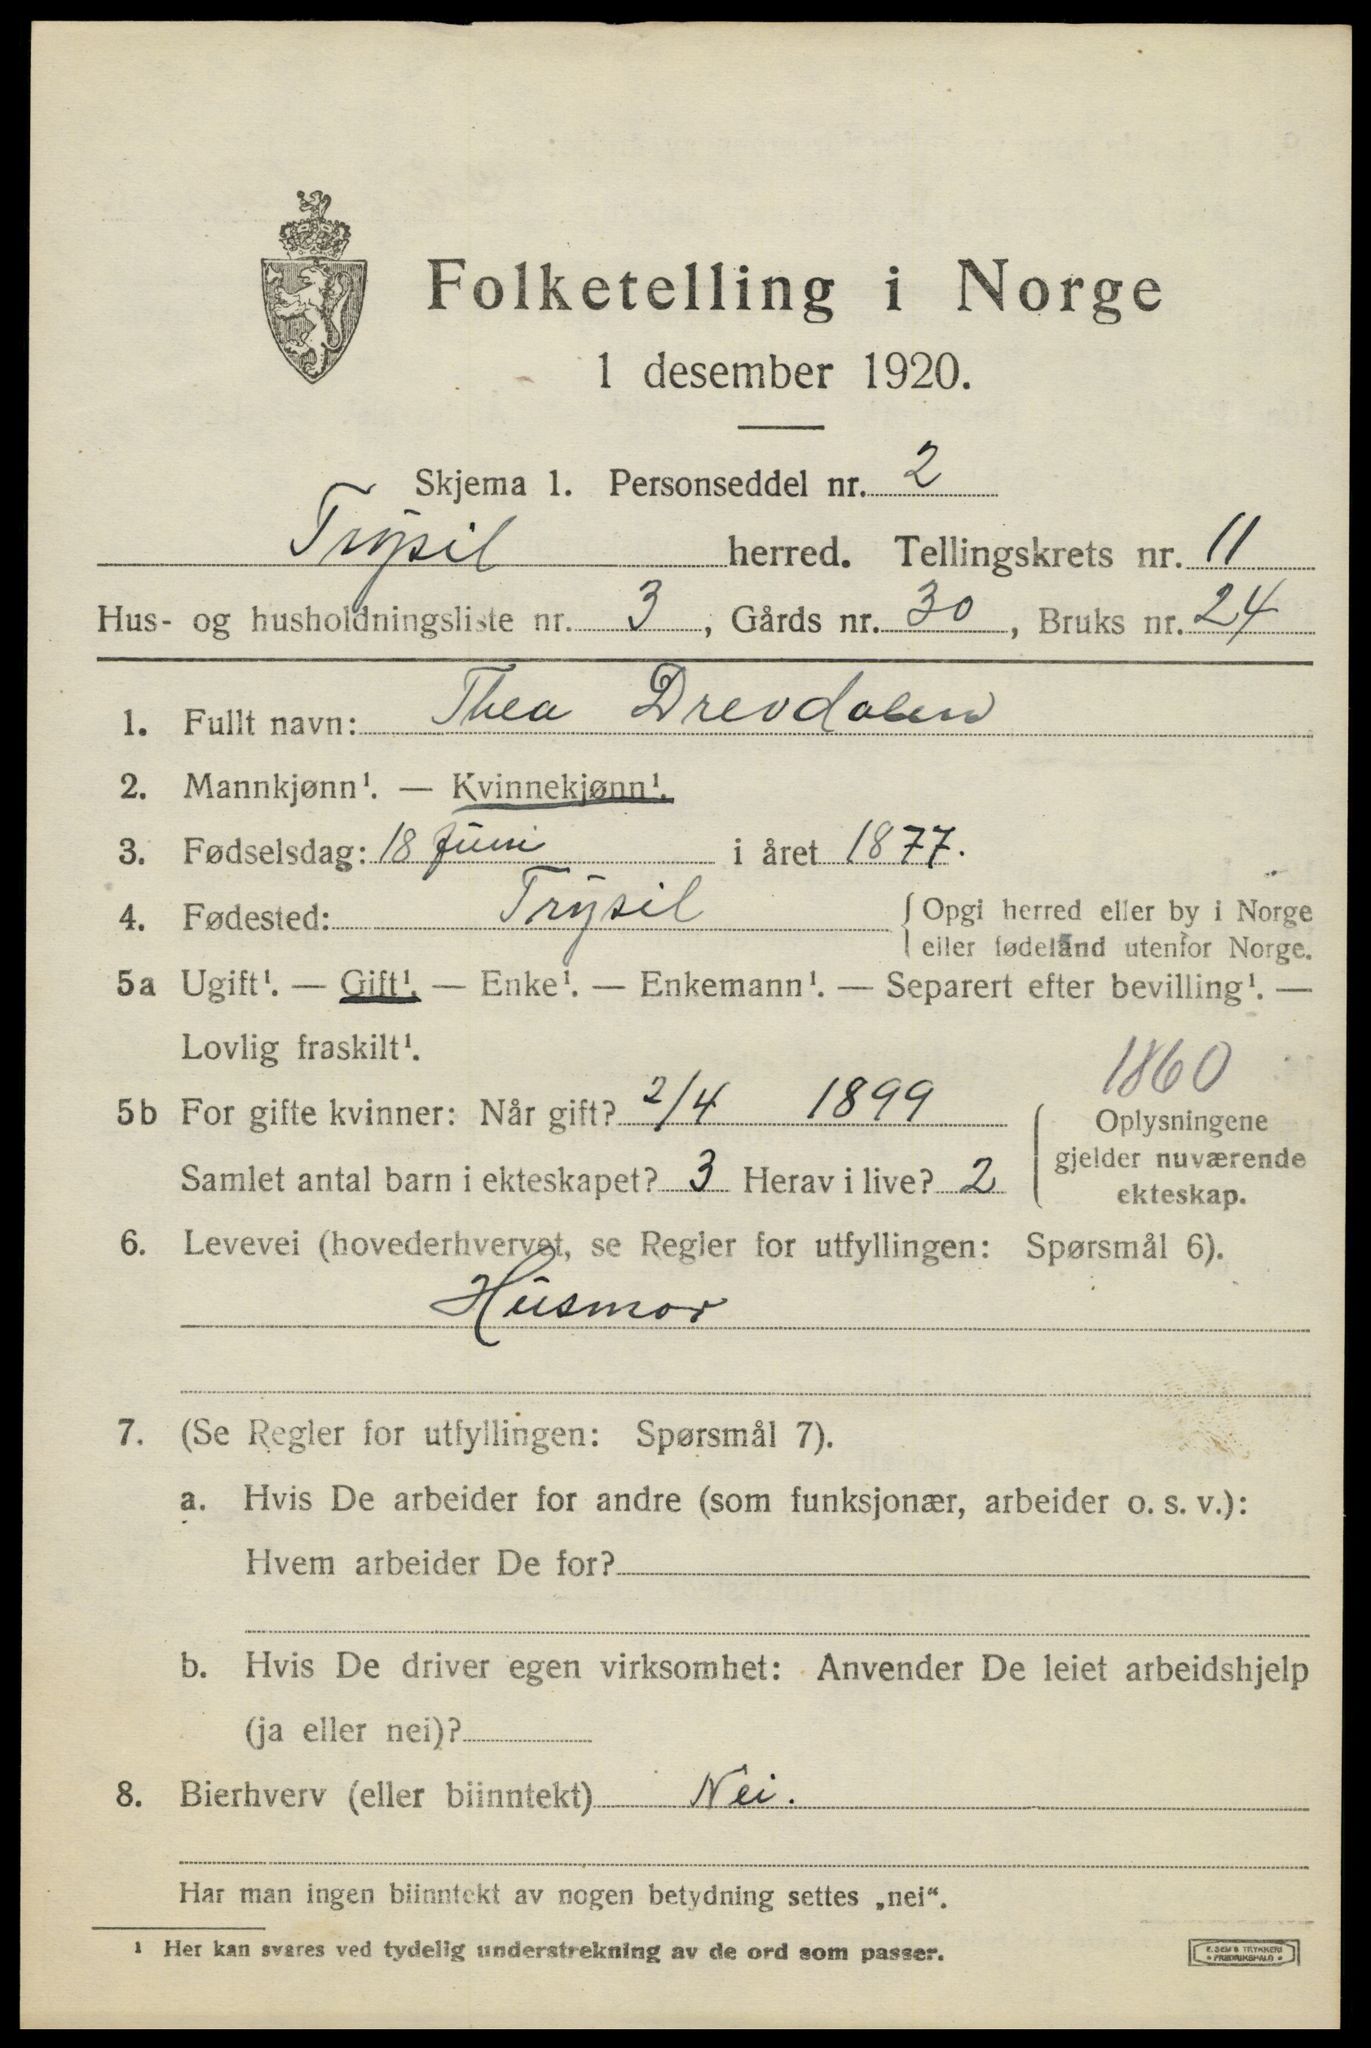 Folketelling i Norge
1 desember 1920.
Skjema 1. Personseddel nr. 2
Trysil herred. Tellingskrets nr. 11
Hus- og husholdningsliste nr. 3, Gårds nr. 30, Bruks nr. 24
1. Fullt navn: Thea Drevdalen
2. Mannkjønn¹. — Kvinnekjønn¹.
3. Fødselsdag: 18 juni i året 1877.
4. Fødested: Trysil { Opgi herred eller by i Norge
eller fødeland utenfor Norge.
5a Ugift¹. — Gift¹. — Enke¹. — Enkemann¹. — Separert efter bevilling¹. —
Lovlig fraskilt¹.
1860
5b For gifte kvinner: Når gift? 2/4 1899
Oplysningene
gjelder nuværende
ekteskap.
Samlet antal barn i ekteskapet? 3 Herav i live? 2
6. Levevei (hovederhvervet, se Regler for utfyllingen: Spørsmål 6).
Husmor
7. (Se Regler for utfyllingen: Spørsmål 7).
a. Hvis De arbeider for andre (som funksjonær, arbeider o. s. v.):
Hvem arbeider De for?
b. Hvis De driver egen virksomhet: Anvender De leiet arbeidshjelp
(ja eller nei)?
8. Bierhverv (eller biinntekt) Nei.
Har man ingen biinntekt av nogen betydning settes „nei“.
¹ Her kan svares ved tydelig understrekning av de ord som passer.
E. SEM'S TRYKKERI
• FREDRIKSHALD •